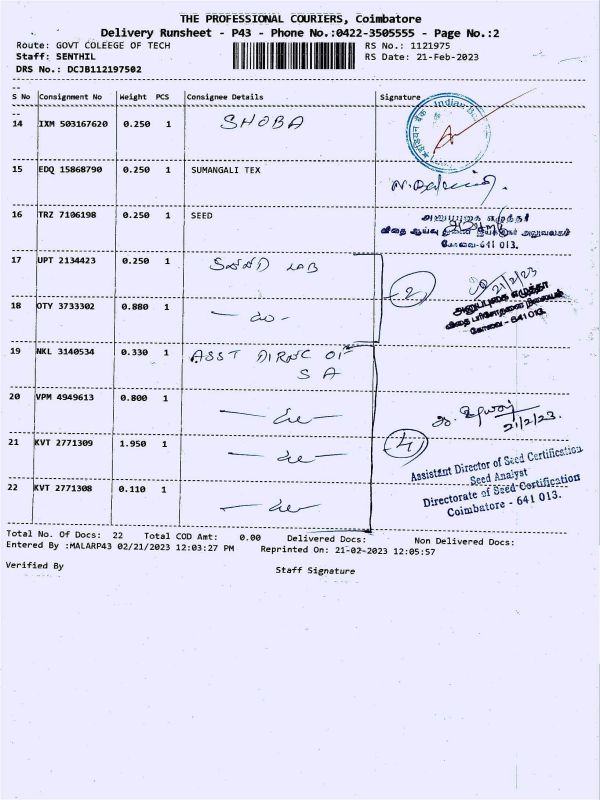 THE PROFESSIONAL COURIERS, Coimbatore
Delivery Runsheet - P43 - Phone No.:0422-3505555 - Page No.:2
Route: GOVT COLEEGE OF TECH
RS No.: 1121975
Staff: SENTHIL
RS Date: 21-Feb-2023
DRS No.: DCJB112197502
S No Consignment No Weight PCS Consignee Details Signature
14 IXM 503167620 0.250 1 SHOBA
Indian
15 EDQ 15868790 0.250 1 SUMANGALI TEX
16 TRZ 7106198 0.250 1 SEED
அனுப்புகை எழுத்தர்
விதை ஆய்வு துணை இயக்குநர் அலுவலகம்
கோவை-641 013.
17 UPT 2134423 0.250 1 SEED LAB
2
21/2/23
18 OTY 3733302 0.880 1 - do -
அனுப்புகை எழுத்தர்
விதை பரிசோதனை நிலையம்
கோவை - 641013.
19 NKL 3140534 0.330 1 ASST DIREC OF
S A
20 VPM 4949613 0.800 1 - do -
21/2/23.
21 KVT 2771309 1.950 1 - do -
4
Assistant Director of Seed Certification
Seed Analyst
Directorate of Seed Certification
Coimbatore - 641 013.
22 KVT 2771308 0.110 1 - do -
Total No. Of Docs: 22 Total COD Amt: 0.00 Delivered Docs: Non Delivered Docs:
Entered By :MALARP43 02/21/2023 12:03:27 PM Reprinted On: 21-02-2023 12:05:57
Verified By
Staff Signature